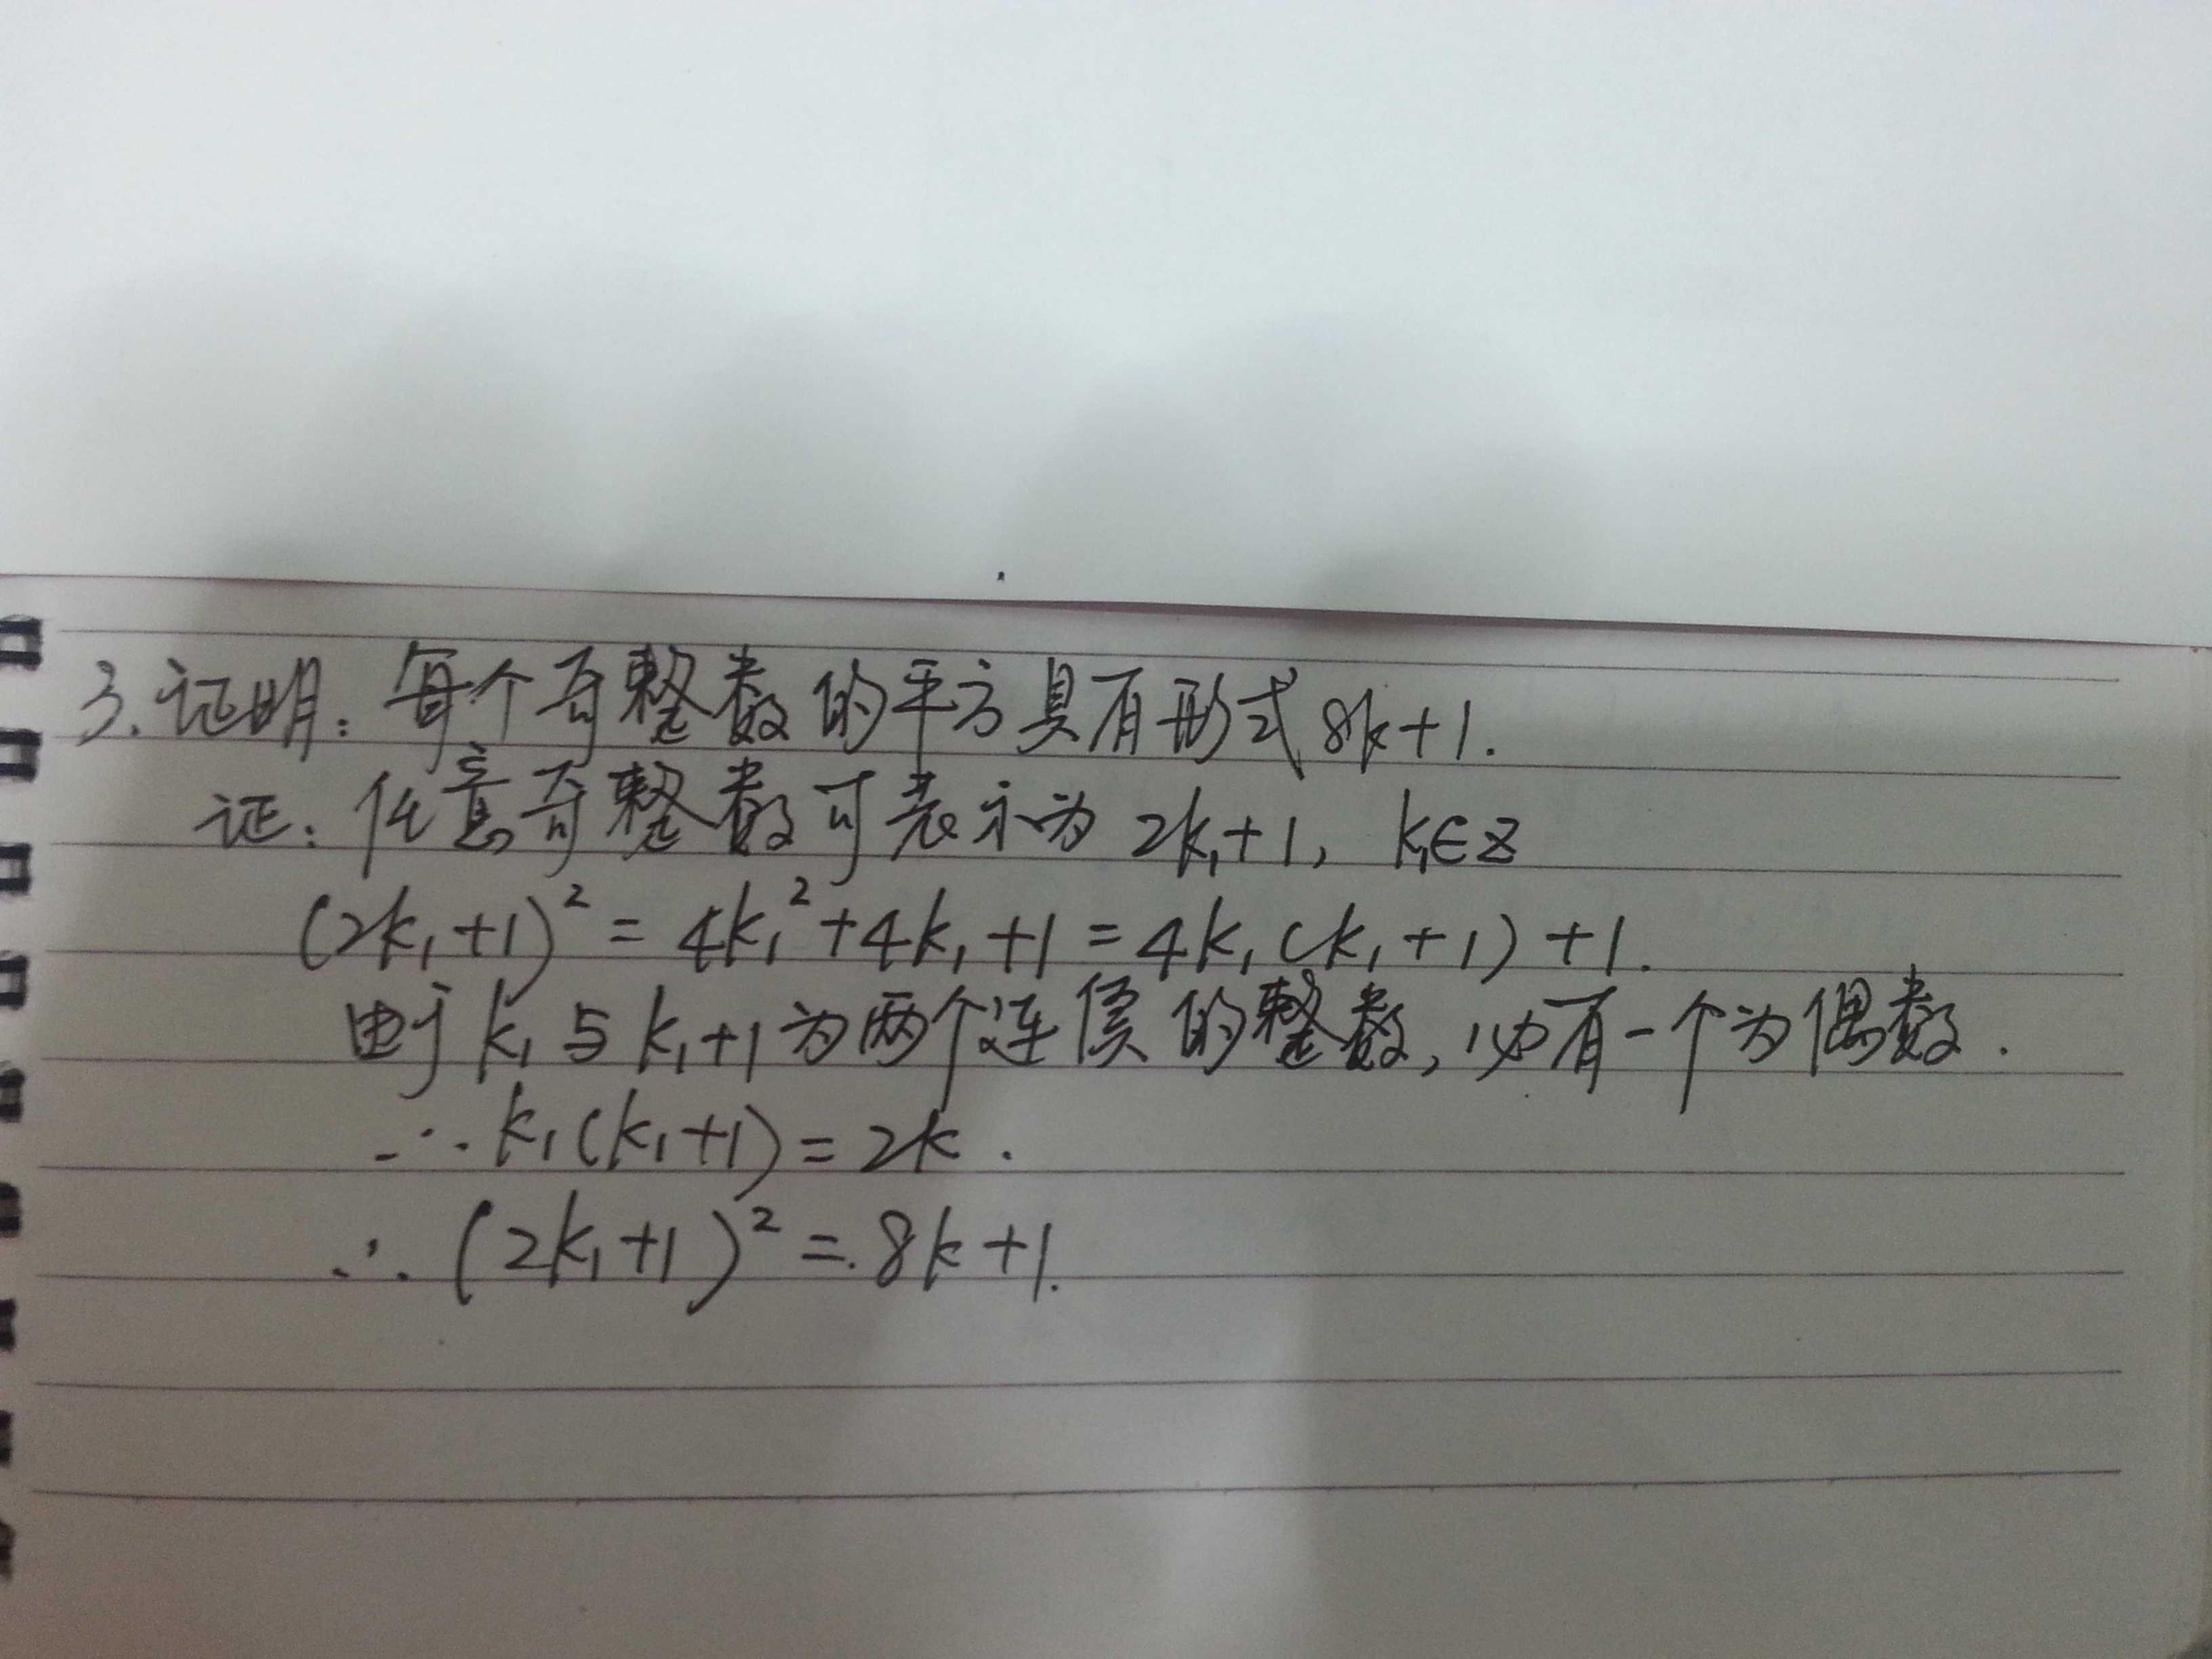 3. 证明：每个奇整数的平方具有形式 8k+1.
证：任意奇整数可表示为 2k₁+1, k₁∈Z
(2k₁+1)² = 4k₁²+4k₁+1 = 4k₁(k₁+1)+1.
由于 k₁与 k₁+1 为两个连续的整数, 必有一个为偶数.
∴ k₁(k₁+1) = 2k.
∴ (2k₁+1)² = 8k+1.